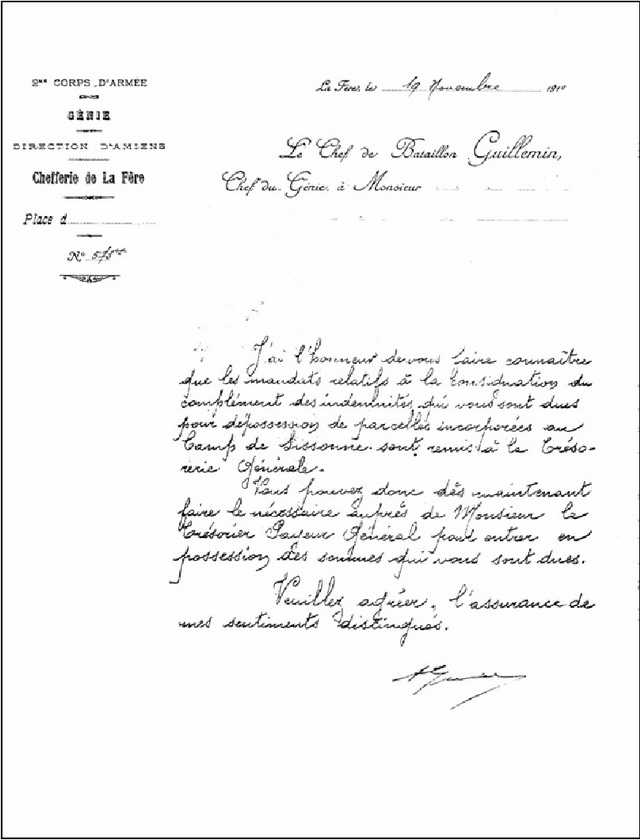 2me CORPS D'ARMÉE
GÉNIE
DIRECTION D'AMIENS
Chefferie de La Fère
Place d
N°
La Fère, le 19 Novembre 1910
Le Chef de Bataillon Guillemin,
Chef du Génie à Monsieur
J'ai l'honneur de vous faire connaître
que les mandats relatifs à la consignation du
complément des indemnités qui vous sont dues
pour dépossession de parcelles incorporées au
Camp de Sissonne sont remis à la Tréso-
rerie Générale.
Vous pouvez donc dès maintenant
faire le nécessaire auprès de Monsieur le
Trésorier Payeur Général pour entrer en
possession des sommes qui vous sont dues.
Veuillez agréer, l'assurance de
mes sentiments distingués.